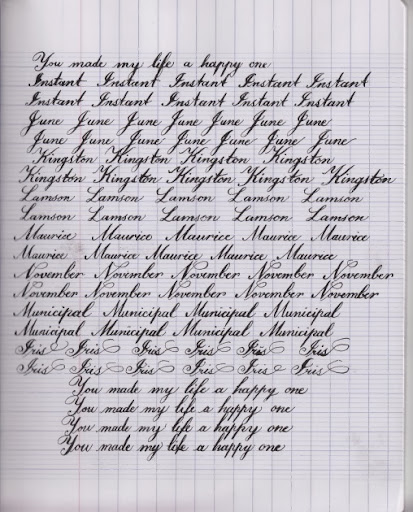 You made my life a happy one
Instant Instant Instant Instant Instant
Instant Instant Instant Instant Instant
June June June June June June June
June June June June June June June
Kingston Kingston Kingston Kingston
Kingston Kingston Kingston Kingston Kingston
Lamson Lamson Lamson Lamson Lamson
Lamson Lamson Lamson Lamson Lamson
Maurice Maurice Maurice Maurice Maurice
Maurice Maurice Maurice Maurice Maurice
November November November November November
November November November November November
Municipal Municipal Municipal Municipal
Municipal Municipal Municipal Municipal
Iris Iris Iris Iris Iris Iris
Iris Iris Iris Iris Iris Iris
You made my life a happy one
You made my life a happy one
You made my life a happy one
You made my life a happy one